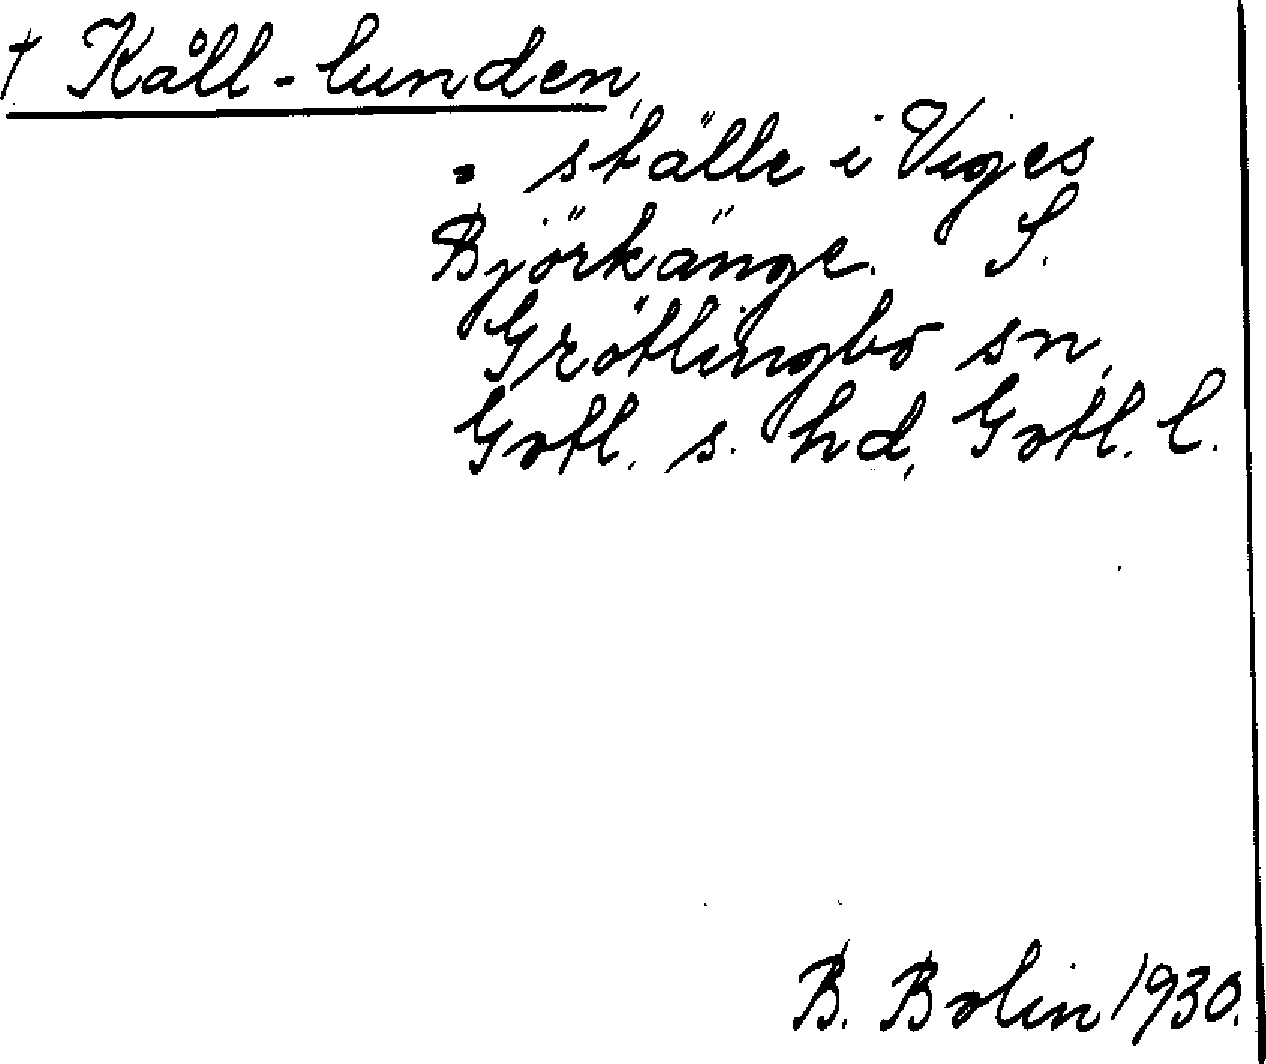 † Kåll-lunden,
ställe i Viges
Björkänge. S.
Grötlingbo sn,
Gotl. s. hd, Gotl. l.
B. Bolin 1930.